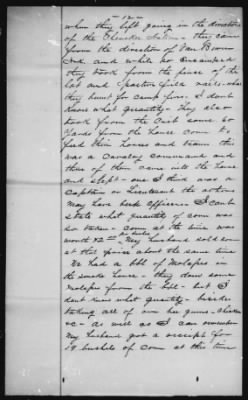 when they left going in the direction
of the Cherokee Nation - they came
from the direction of Van Buren
and while so encamped
they took from the fence of the
lot and fence field rails which
they burnt for camp fires - I dont
know what quantity - They also
took from the Crib some 60
yards from the house corn to
feed their horses and teams this
was a Cavalry command and
three of them came into the house
and slept - one I think was a
Captain or Lieutenant the others
may have been officers I cant
state what quantity of corn was
so taken - corn at the time was
worth $2 00 per bushel My husband sold some
at that price about the same time
We had a bbl of Molasses in
the smoke house - they drew some
molasses from the bbl - but I
dont know what quantity - besides
taking all of our hen guns - chickens
&c - as well as I can remember
My husband got a receipt for
19 bushels of corn at this time